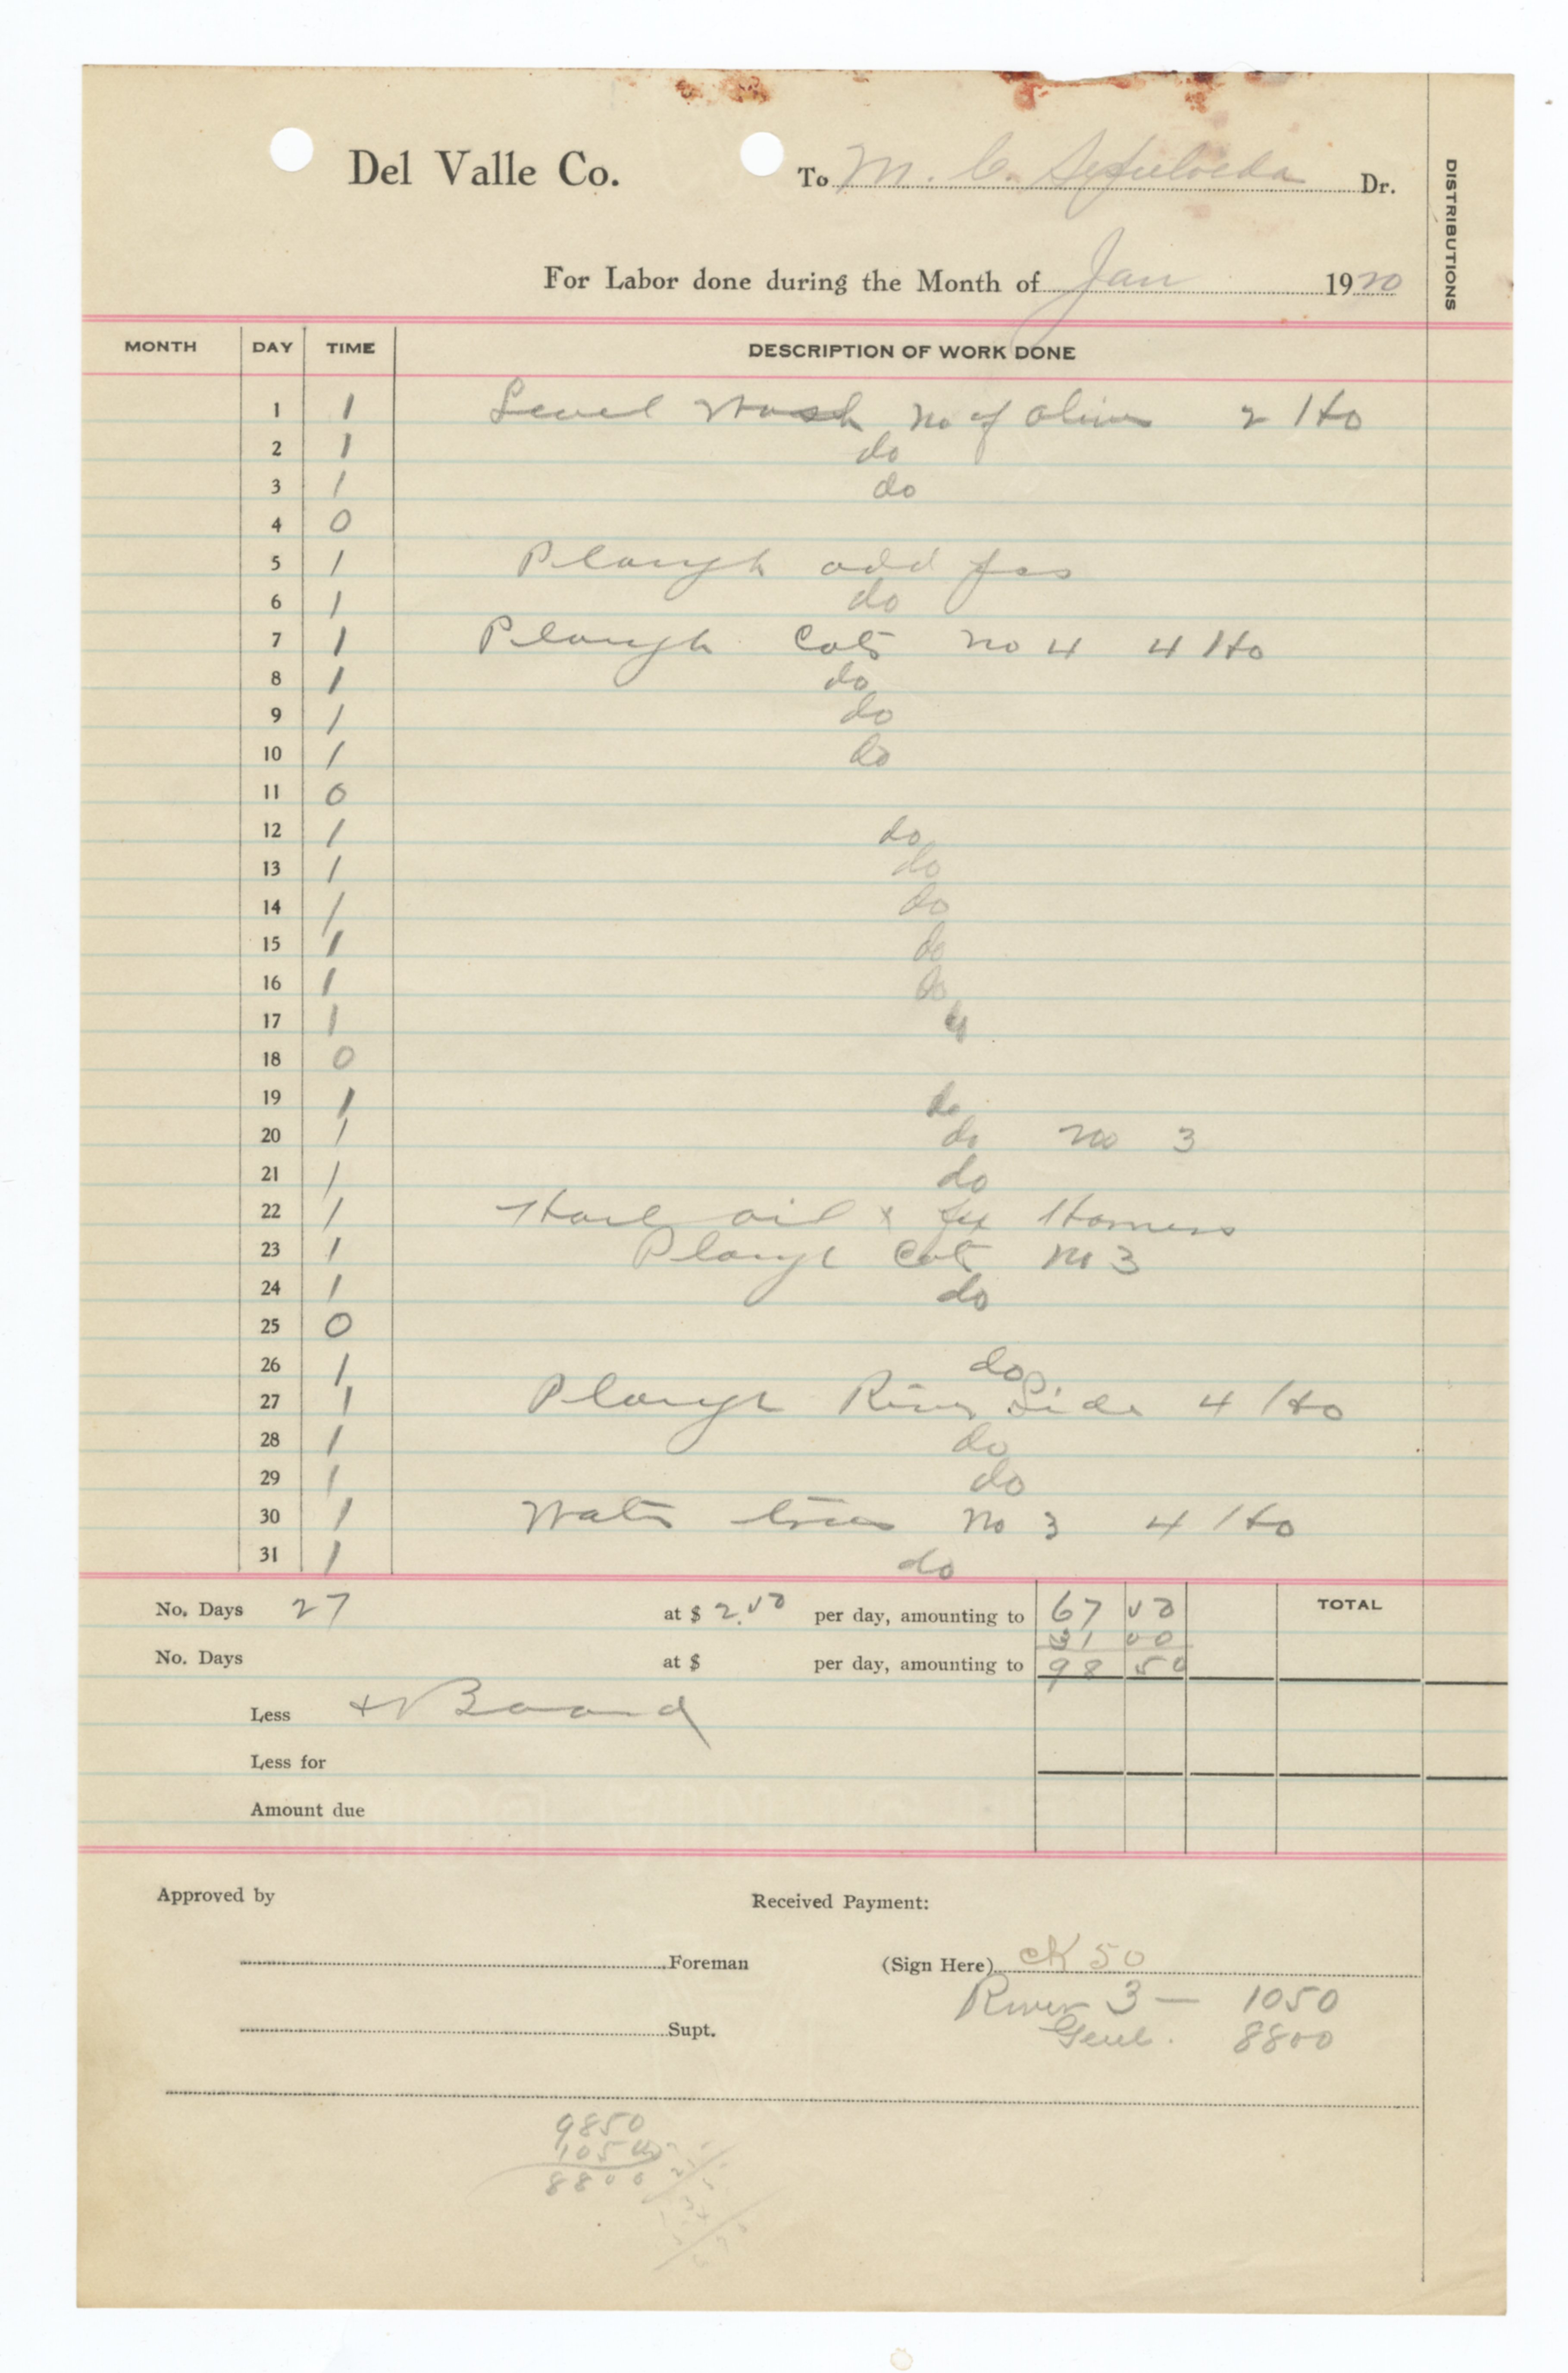 Del Valle Co. To M. C. Sepulveda Dr.
DISTRIBUTIONS
For Labor done during the Month of Jan 1920
MONTH DAY TIME DESCRIPTION OF WORK DONE
1 1 Level Wash No of Olives 2 Ho
2 1 do
3 1 do
4 0
5 1 Plough odd jos
6 1 do
7 1 Plough Cots No 4 4 Ho
8 1 do
9 1 do
10 1 do
11 0
12 1 do
13 1 do
14 1 do
15 1 do
16 1 do
17 1
18 0
19 1 do
20 1 do No 3
21 1 do
22 1 Haul oil & fix Harness
23 1 Plough Cots No 3
24 1 do
25 0
26 1 do
27 1 Plough River Side 4 Ho
28 1 do
29 1 do
30 1 Water trees No 3 4 Ho
31 1 do
No. Days 27 at $ 2.50 per day, amounting to 67 50 TOTAL
31 00
No. Days at $ per day, amounting to 98 50
Less + Board
Less for
Amount due
Approved by Received Payment:
Foreman (Sign Here) CK 50
River 3 — 1050
Supt. Genl. 8800
9850
1050
8800